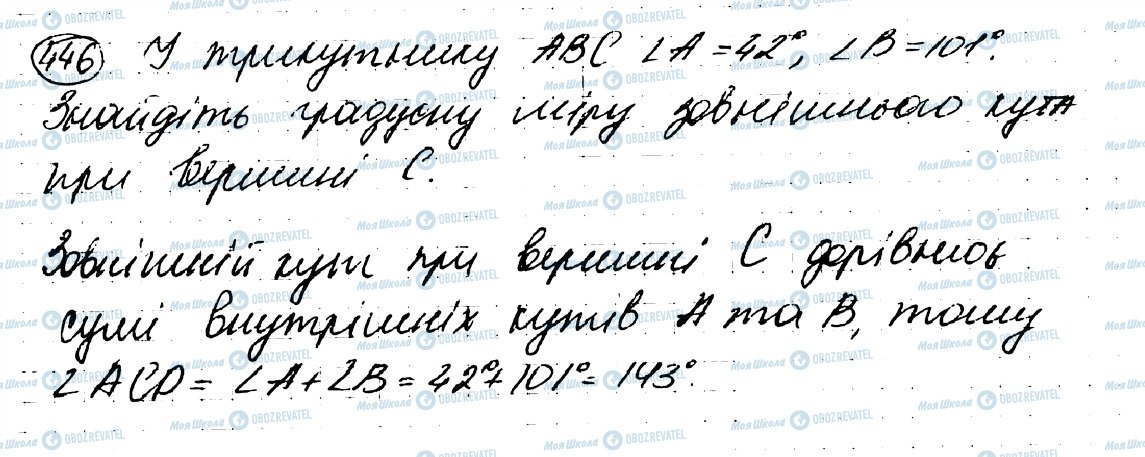 446 У трикутнику ABC ∠A = 42°, ∠B = 101°.
Знайдіть градусну міру зовнішнього кута
при вершині C.
Зовнішній кут при вершині C дорівнює
сумі внутрішніх кутів A та B, тому
∠ACD = ∠A + ∠B = 42° + 101° = 143°.